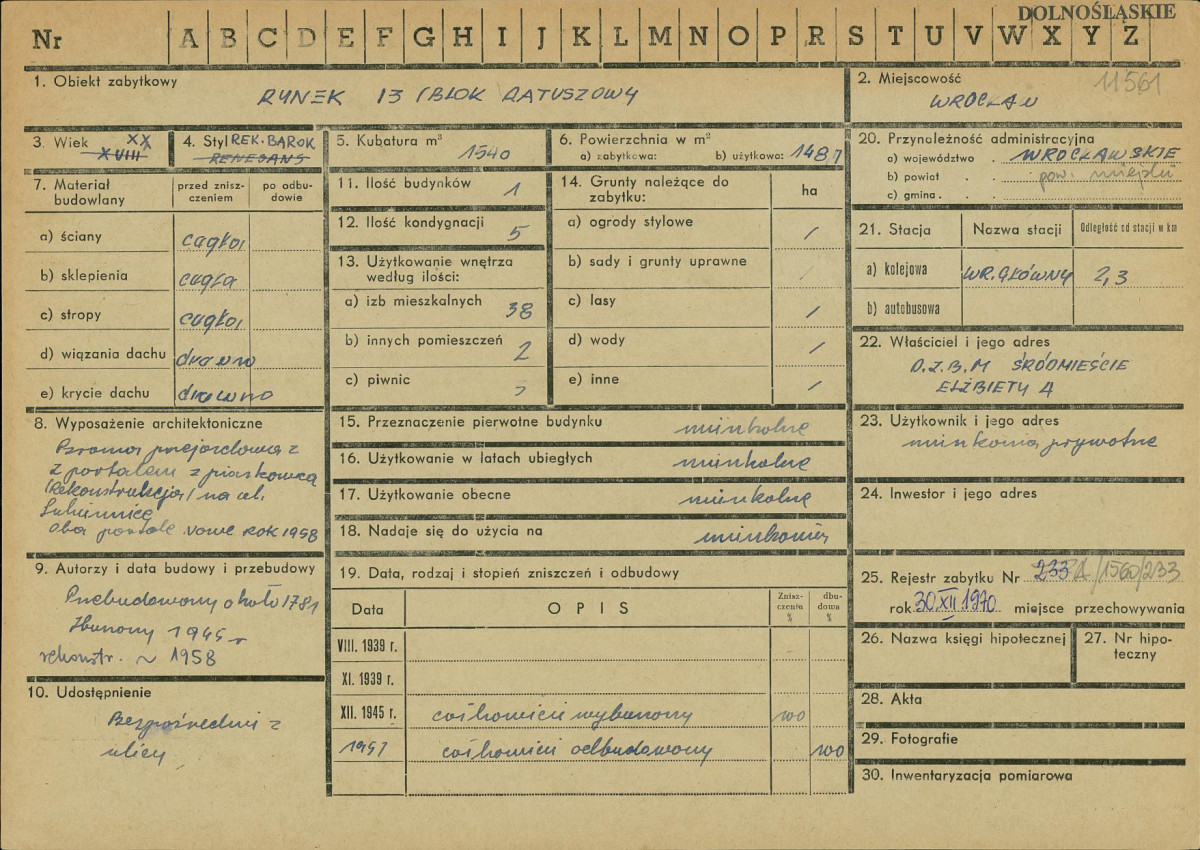 DOLNOŚLĄSKIE
Nr A B C D E F G H I J K L M N O P R S T U V W X Y Z
1. Obiekt zabytkowy
RYNEK 13 (BLOK RATUSZOWY
2. Miejscowość
11561
WROCŁAW
3. Wiek XX
XVIII
4. Styl REK. BAROK
RENESANS
5. Kubatura m³
1540
6. Powierzchnia w m²
a) zabytkowa: b) użytkowa: 148,7
20. Przynależność administracyjna
a) województwo . WROCŁAWSKIE
b) powiat . . pow. miejski
c) gmina . .
7. Materiał budowlany
przed zniszczeniem
po odbudowie
a) ściany cegła
b) sklepienia cegła
c) stropy cegła
d) wiązania dachu drewno
e) krycie dachu drewno
11. Ilość budynków 1
12. Ilość kondygnacji 5
13. Użytkowanie wnętrza
według ilości:
a) izb mieszkalnych 38
b) innych pomieszczeń 2
c) piwnic
14. Grunty należące do
zabytku:
ha
a) ogrody stylowe /
b) sady i grunty uprawne
c) lasy /
d) wody /
e) inne /
21. Stacja
Nazwa stacji
Odległość od stacji w km
a) kolejowa WR. GŁÓWNY 2,3
b) autobusowa
22. Właściciel i jego adres
D.Z.B.M ŚRÓDMIEŚCIE
ELŻBIETY 4
8. Wyposażenie architektoniczne
Brama przejazdowa z
z portalem z piaskowca
(rekonstrukcja) na ul.
Sukiennice
oba portale nowe ROK 1958
15. Przeznaczenie pierwotne budynku mieszkalne
16. Użytkowanie w latach ubiegłych mieszkalne
17. Użytkowanie obecne mieszkalne
18. Nadaje się do użycia na mieszkania
23. Użytkownik i jego adres
mieszkania prywatne
24. Inwestor i jego adres
9. Autorzy i data budowy i przebudowy
Przebudowany około 1781
Zburzony 1945 r
rekonstr. ~ 1958
19. Data, rodzaj i stopień zniszczeń i odbudowy
Data
OPIS
Zniszczenia %
dbudowa %
VIII. 1939 r.
XI. 1939 r.
XII. 1945 r. całkowicie wyburzony 100
1957 całkowicie odbudowany 100
10. Udostępnienie
Bezpośrednie z
ulicy
25. Rejestr zabytku Nr 233 A/1560/233
rok 30 XII 1970 miejsce przechowywania
26. Nazwa księgi hipotecznej
27. Nr hipoteczny
28. Akta
29. Fotografie
30. Inwentaryzacja pomiarowa